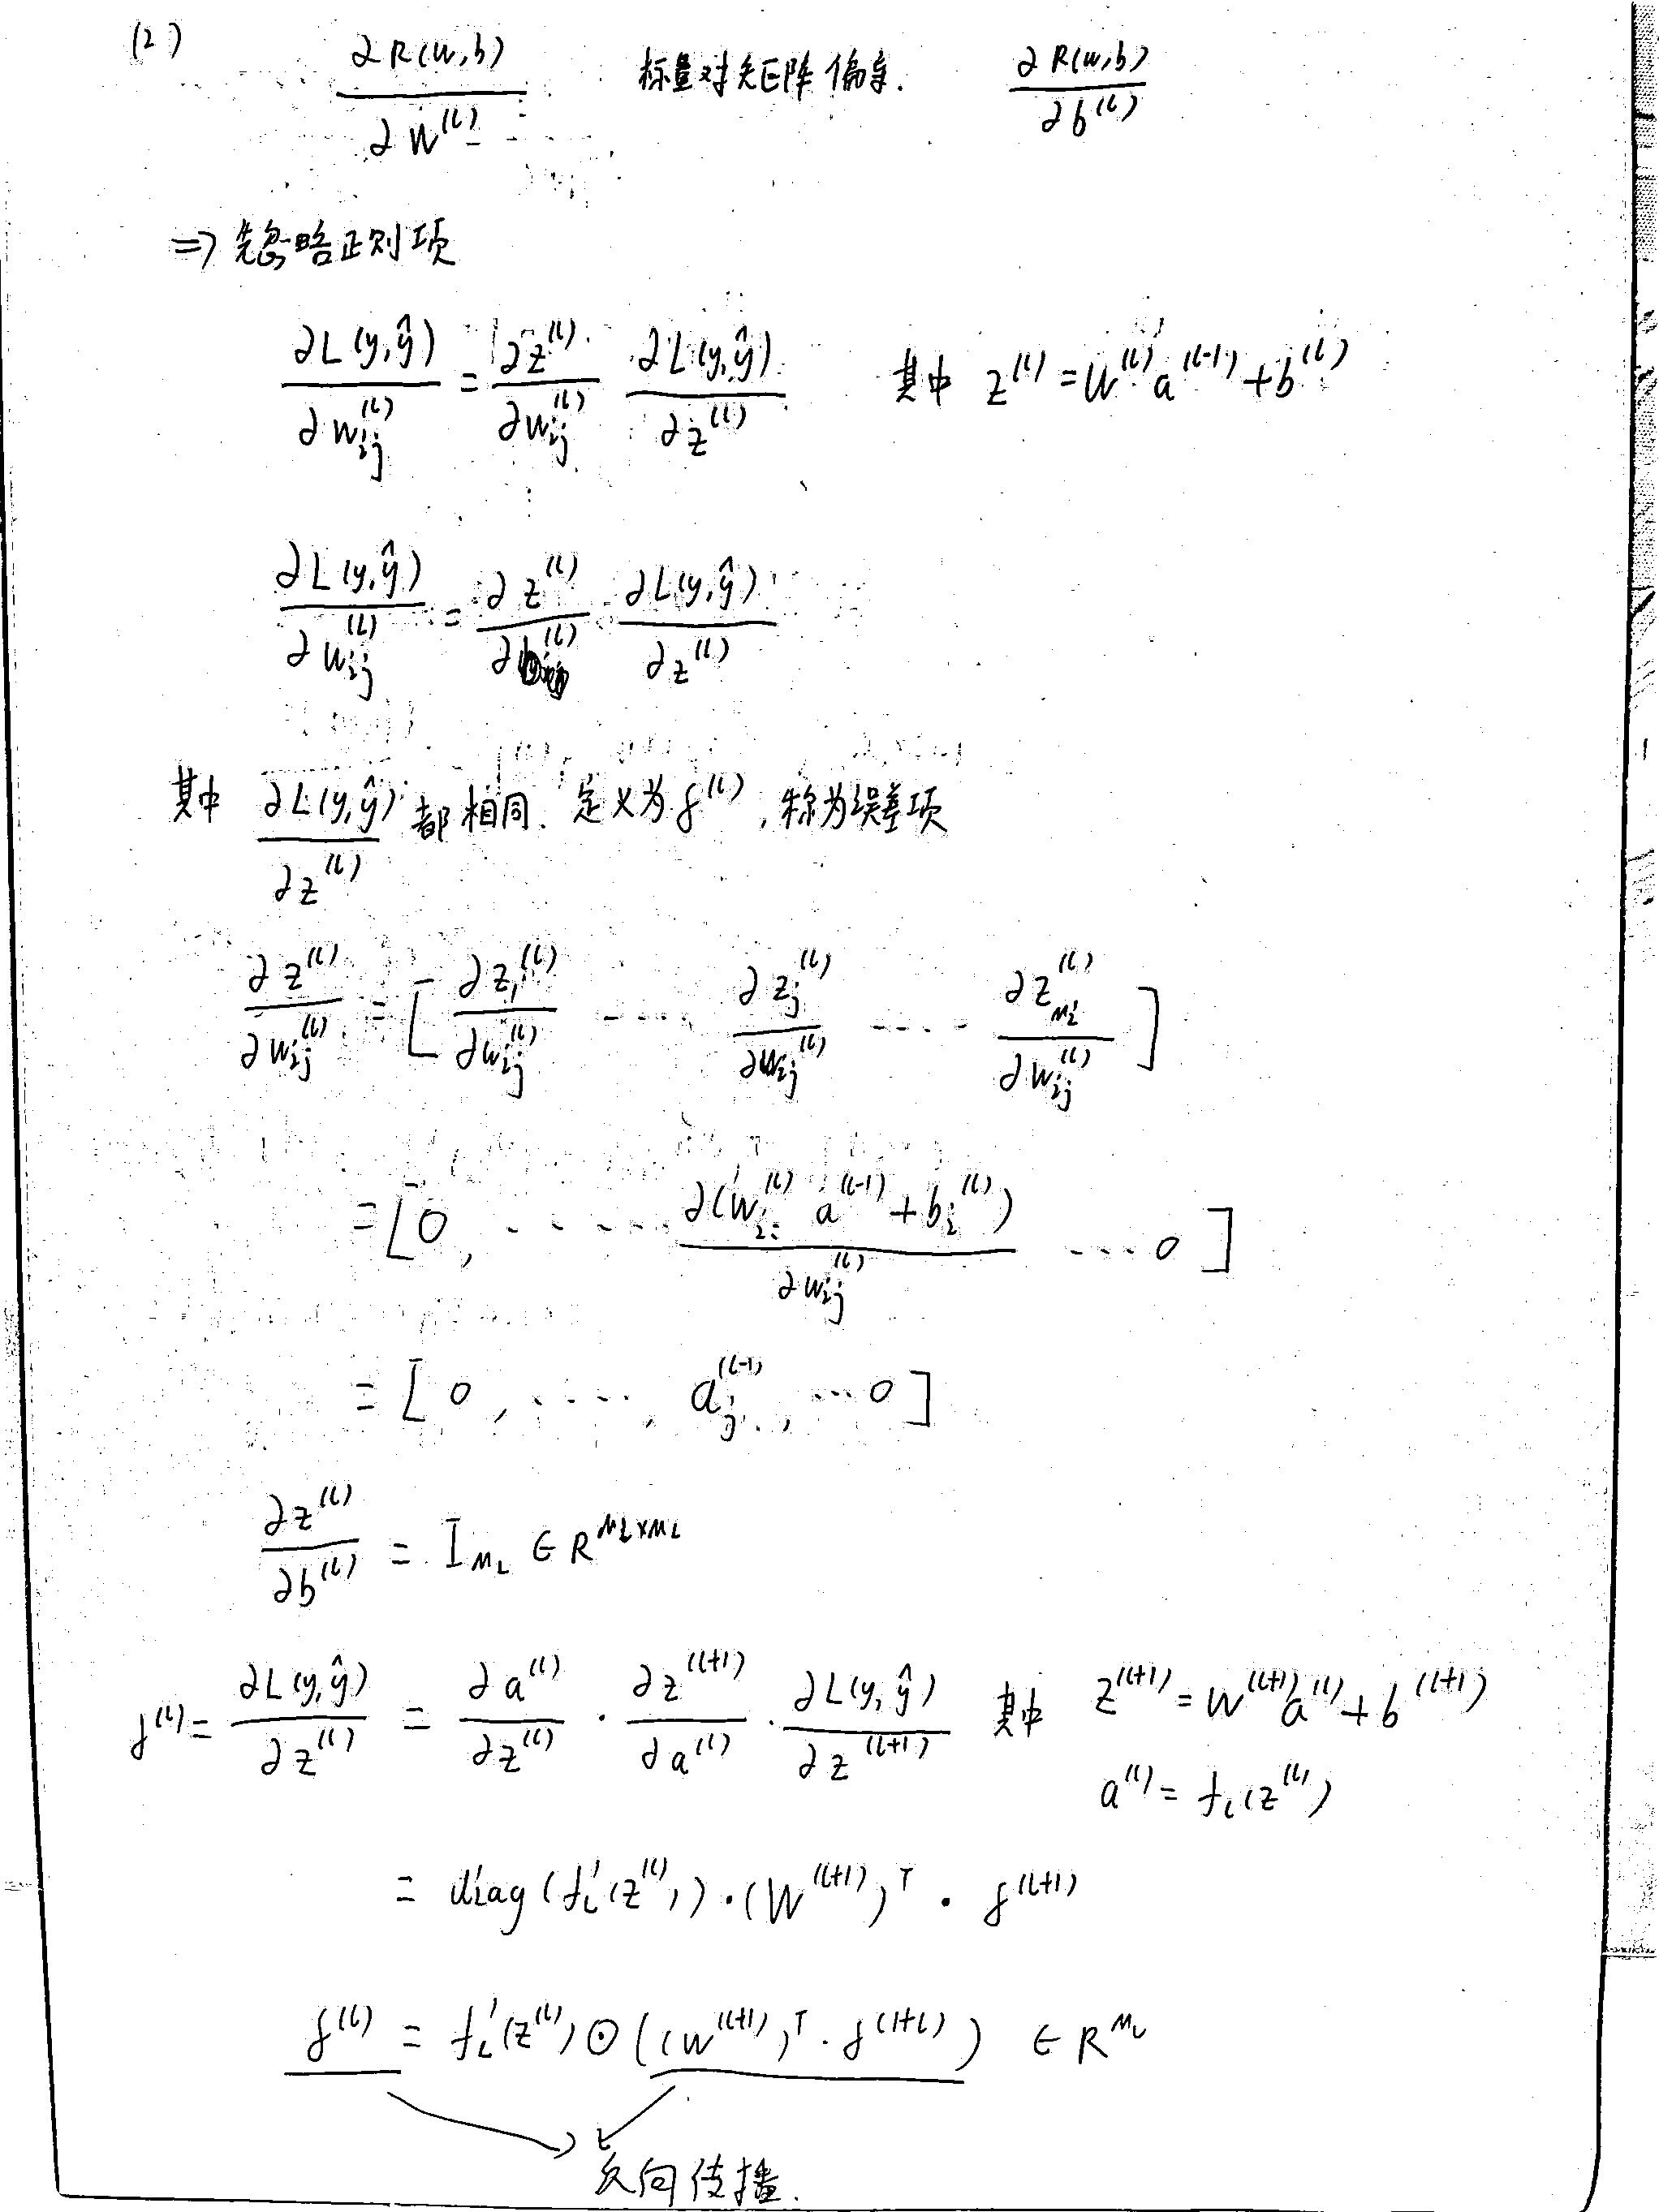 (2) ∂R(W,b)/∂W^(l) 标量对矩阵偏导. ∂R(W,b)/∂b^(l)
⇒ 先忽略正则项
∂L(y,ŷ)/∂w_ij^(l) = ∂z^(l)/∂w_ij^(l) ∂L(y,ŷ)/∂z^(l) 其中 z^(l) = W^(l) a^(l-1) + b^(l)
∂L(y,ŷ)/∂w_ij^(l) = ∂z^(l)/∂b^(l) · ∂L(y,ŷ)/∂z^(l)
其中 ∂L(y,ŷ)/∂z^(l) 都相同. 定义为 δ^(l), 称为误差项
∂z^(l)/∂w_ij^(l) = [ ∂z_1^(l)/∂w_ij^(l) ---- ∂z_j^(l)/∂w_ij^(l) ---- ∂z_{M_l}^(l)/∂w_ij^(l) ]
= [0, ····· ∂(w_{i:}^(l) a^(l-1) + b_i^(l))/∂w_ij^(l) ···· 0 ]
= [ 0, ····, a_j^(l-1), ··· 0 ]
∂z^(l)/∂b^(l) = I_{M_l} ∈ R^{M_l×M_l}
δ^(l) = ∂L(y,ŷ)/∂z^(l) = ∂a^(l)/∂z^(l) · ∂z^(l+1)/∂a^(l) · ∂L(y,ŷ)/∂z^(l+1) 其中 z^(l+1) = W^(l+1) a^(l) + b^(l+1)
a^(l) = f_l(z^(l))
= diag(f_l'(z^(l))) · (W^(l+1))^T · δ^(l+1)
δ^(l) = f_l'(z^(l)) ⊙ ((W^(l+1))^T · δ^(1+l)) ∈ R^{M_l}
反向传播.